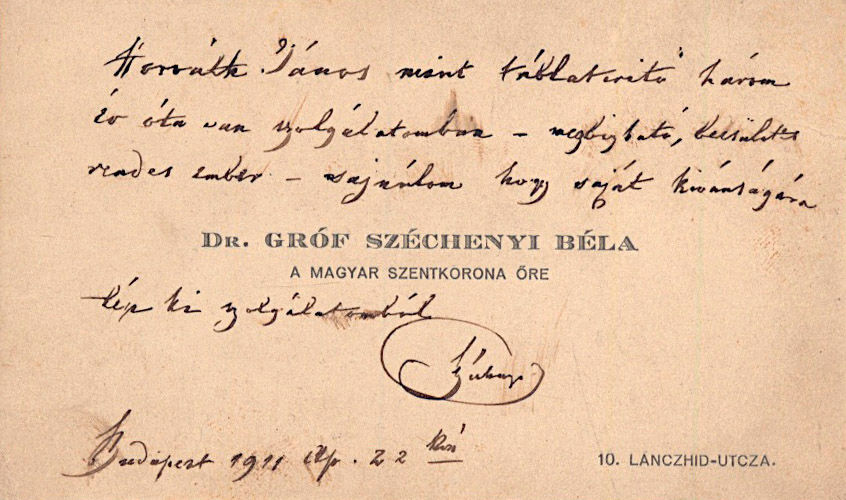 Horváth János mint táblaterítő három
év óta van szolgálatomban – megbizható, becsületes
rendes ember – sajnálom hogy saját kivánságára
DR. GRÓF SZÉCHENYI BÉLA
A MAGYAR SZENTKORONA ŐRE
lép ki szolgálatomból
Budapest 1911 Ap. 22
10. LÁNCZHID-UTCZA.